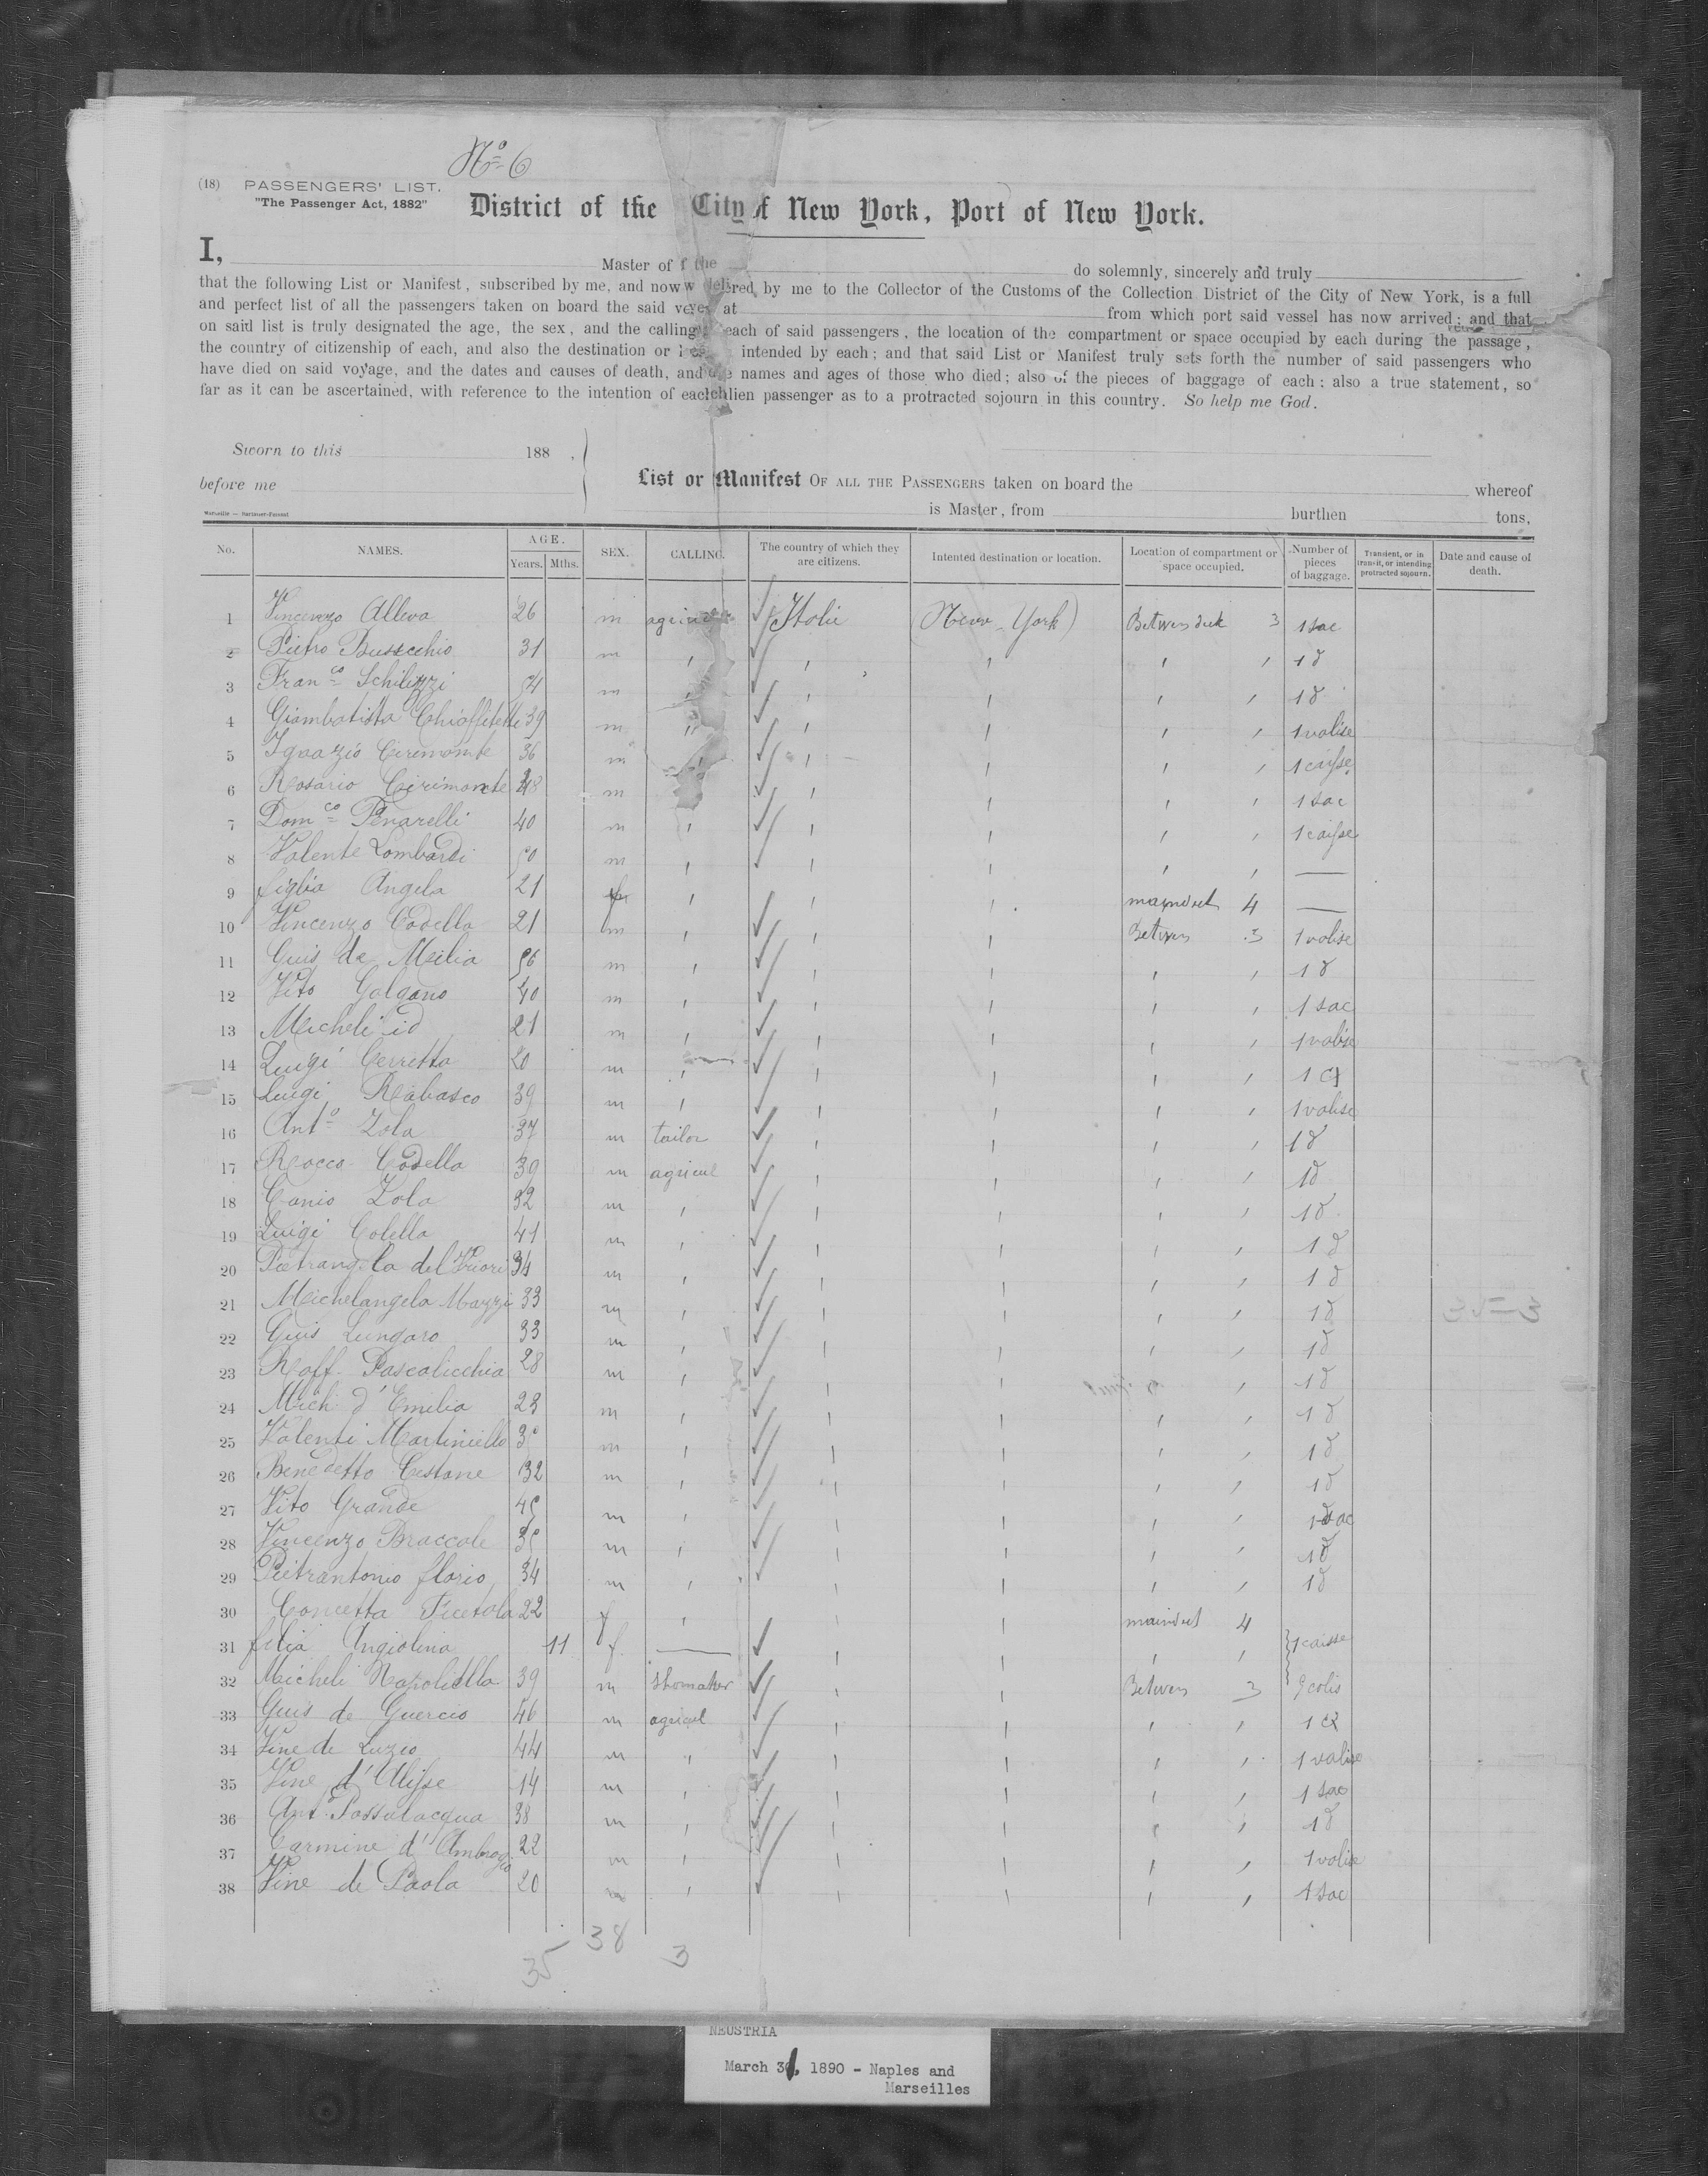 Nº 6
(18) PASSENGERS' LIST.
"The Passenger Act, 1882"
District of the City of New York, Port of New York.
I, Master of the do solemnly, sincerely and truly
that the following List or Manifest, subscribed by me, and now delivered by me to the Collector of the Customs of the Collection District of the City of New York, is a full
and perfect list of all the passengers taken on board the said at from which port said vessel has now arrived; and that
on said list is truly designated the age, the sex, and the calling each of said passengers, the location of the compartment or space occupied by each during the passage,
the country of citizenship of each, and also the destination or intended by each; and that said List or Manifest truly sets forth the number of said passengers who
have died on said voyage, and the dates and causes of death, and names and ages of those who died; also of the pieces of baggage of each; also a true statement, so
far as it can be ascertained, with reference to the intention of each alien passenger as to a protracted sojourn in this country. So help me God.
Sworn to this 188 ,
before me
List or Manifest OF ALL THE PASSENGERS taken on board the whereof
is Master, from burthen tons,
No. NAMES. AGE. Years. Mths. SEX. CALLING. The country of which they are citizens. Intented destination or location. Location of compartment or space occupied. Number of pieces of baggage. Transient, or in transit, or intending protracted sojourn. Date and cause of death.
1 Vincenzo Alleva 26 m Italie (New York) 3 1 sac
2 Pietro 31 m 1 d
3 Franco Schilizzi 54 m 1 d
4 Giambatista 39 m 1 valise
5 Ignazio Cirimonte 36 m 1 caisse
6 Rosario Cirimonte m 1 sac
7 Domco Penarelli 40 m 1 caisse
8 Valente Lombardi 50 m
9 figlia Angela 21 f 4
10 Vincenzo Codella 21 m Between 3 1 valise
11 Guis de Meilia 56 m 1 d
12 Vito Galgano 40 m 1 sac
13 Micheli id 21 m 1 valise
14 Luigi Cerretta 20 m 1
15 Luigi Rabasco 39 m 1 valise
16 Anto Zola 37 m tailor 1 d
17 Rocco Codella 39 m agricul 1 d
18 Canio Zola 32 m 1 d
19 Luigi Colella 41 m 1 d
20 Pietrangela del 34 m 1 d
21 Michelangela Mazzi 33 m 1 d
22 Guis Lungaro 33 m 1 d
23 Raff. Pascalicchia 28 m 1 d
24 Mich. d'Emilia 23 m 1 d
25 Valenti Martiniello m 1 d
26 Benedetto Cestone 32 m 1 d
27 Vito Grande 45 m 1 sac
28 Vincenzo Braccale 35 m 1 d
29 Pietrantonio florio 34 m 1 d
30 Concetta Ficetola 22 f 4
31 filia Angiolina 11 f 1 caisse
32 Micheli Napolitello 39 m shomaker Between 3 colis
33 Guis de Guercio 46 m agricul 1
34 Vine de Luzio 44 m 1 valise
35 Vine d'Ulisse 14 m 1 sac
36 Ant. Passalacqua 38 m 1 d
37 Carmine d'Ambrogio 22 m 1 valise
38 Vine de Paola 20 m 1 sac
35 38 3
NEUSTRIA
March 31, 1890 - Naples and
Marseilles